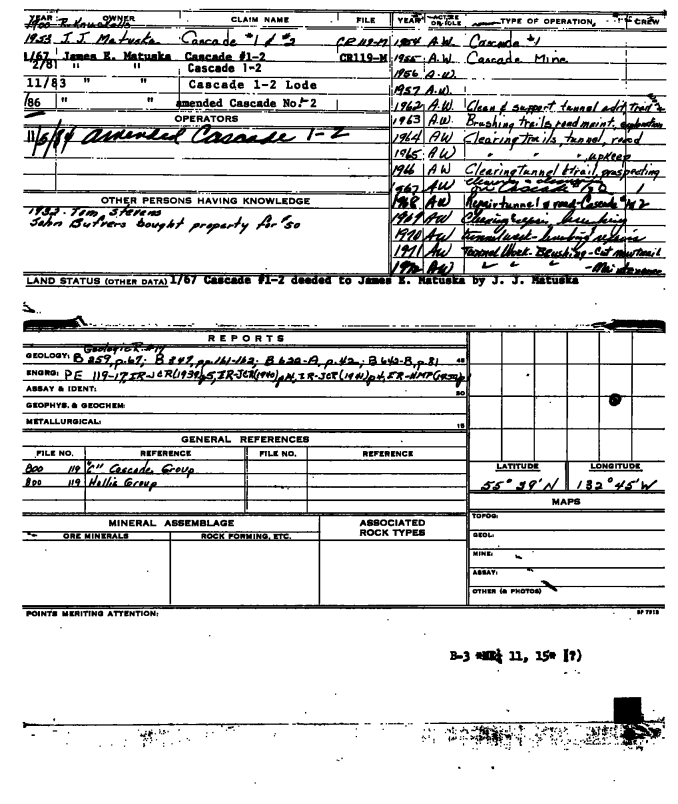 YEAR OWNER CLAIM NAME FILE YEAR ACTIVE OR IDLE TYPE OF OPERATION CREW
1953 J.J. Matuska Cascade #1 & #2 CR119-M 1954 A.W. Cascade #1
1/67 James E. Matuska Cascade #1-2 CR119-M 1955 A.W. Cascade Mine
2/81 Cascade 1-2 1956 A.W.
11/83 " " Cascade 1-2 Lode 1957 A.W.
/86 " " amended Cascade No. 1-2 1962 A.W. Clean & support tunnel adit, trail
OPERATORS 1963 A.W. Brushing trails, road maint, exploration
11/5/84 amended Cascade 1-2 1964 AW Clearing trails, tunnel, road
1965 AW " " " upkeep
1966 AW Clearing tunnel & trail, prospecting
1967 AW
OTHER PERSONS HAVING KNOWLEDGE 1968 AW Repair tunnel & road-Cascade 1&2
1932 - Tom Stevens 1969 AW Clearing & repair, brushing
John Bufvers bought property for $50 1970 AW
1971 AW Tunnel Work - Brushing - Cut new trail
1972 AW " " " - Maintenance
LAND STATUS (OTHER DATA) 1/67 Cascade #1-2 deeded to James E. Matuska by J. J. Matuska
REPORTS
Geologic R. #17
GEOLOGY: B 259, p.67; B 347, pp.161-162; B 622-A, p.42; B 642-B, p.81 45
ENGRG: PE 119-17, IR-JCR(1939)p5, IR-JCR(1940)p14, IR-JCR(1941)p4, IR-HMF(1952)p1
ASSAY & IDENT: 30
GEOPHYS. & GEOCHEM:
METALLURGICAL: 15
GENERAL REFERENCES
FILE NO. REFERENCE FILE NO. REFERENCE
800 119 "C" Cascade Group
800 119 Hollis Group
LATITUDE LONGITUDE
55° 39'N 132° 45'W
MAPS
MINERAL ASSEMBLAGE ASSOCIATED ROCK TYPES
ORE MINERALS ROCK FORMING, ETC.
TOPOG:
GEOL:
MINE:
ASSAY:
OTHER (& PHOTOS)
POINTS MERITING ATTENTION: SP 7915
B-3 11, 15* (?)